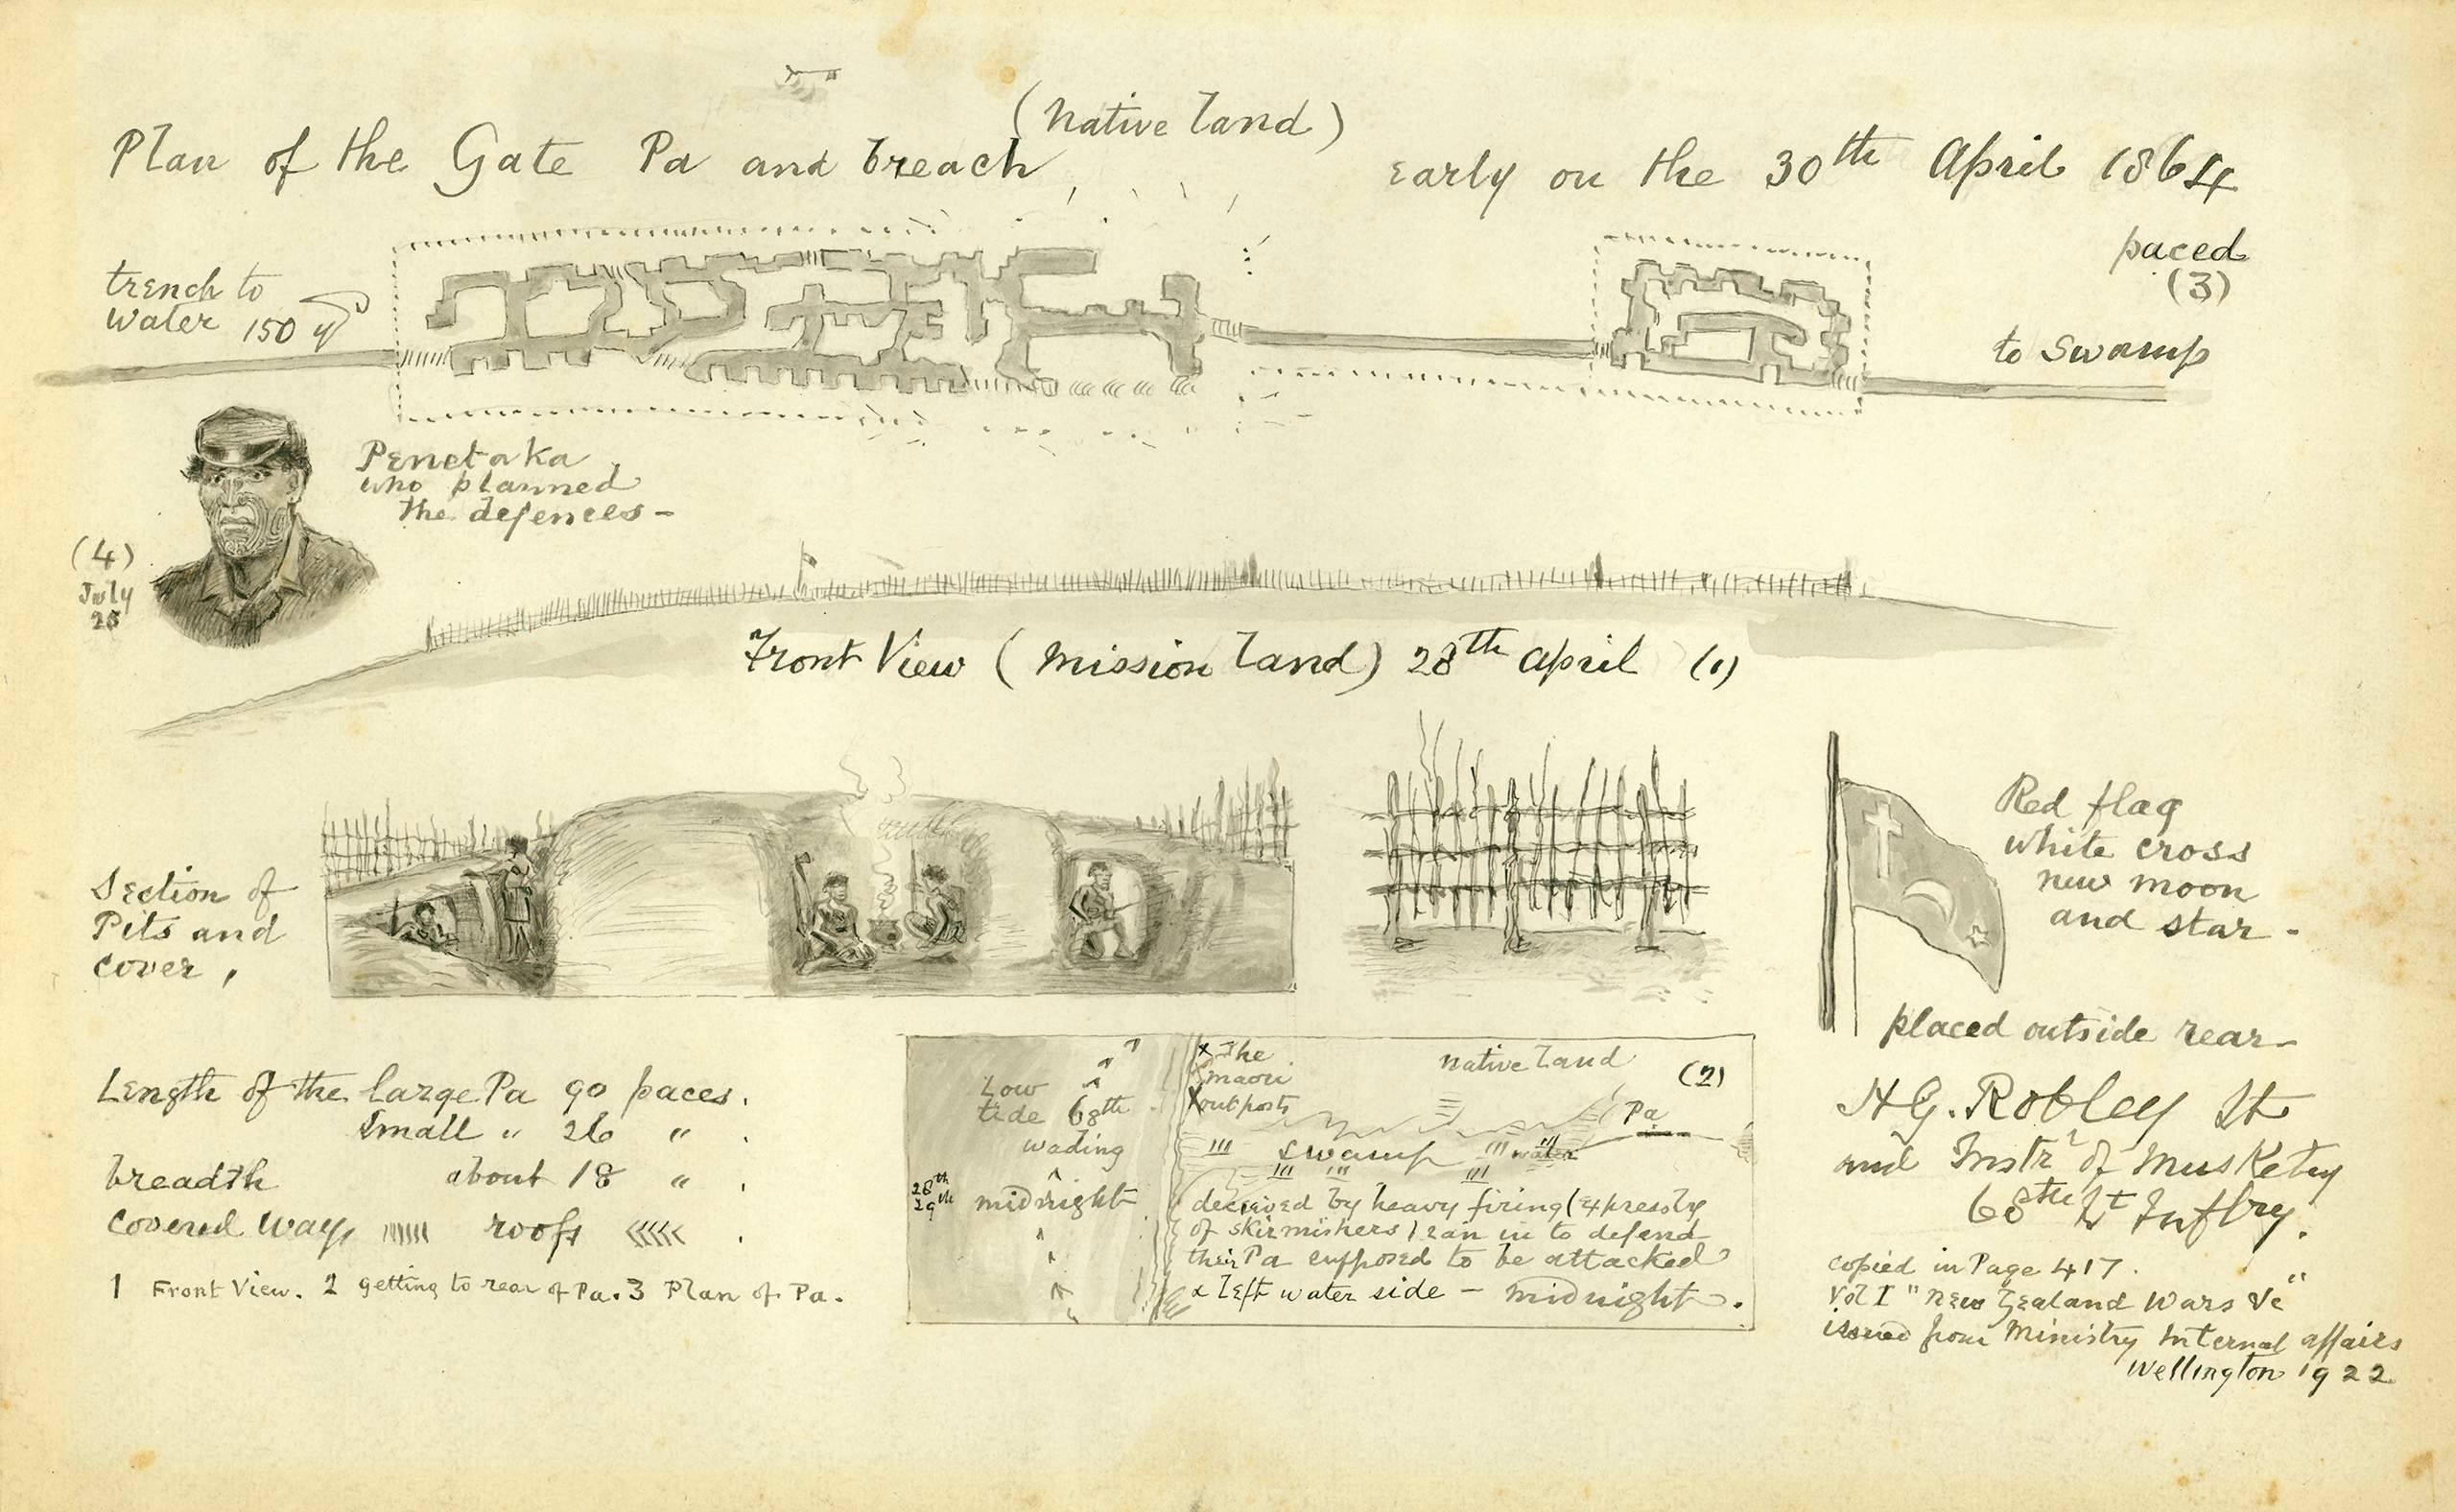 (Native Land)
Plan of the Gate Pa and breach early on the 30th April 1864
paced
(3)
trench to
water 150 y
to Swamp
Penetaka
who planned
the defences -
(4)
July
28
Front View (Mission Land) 28th April (1)
Section of
Pits and
cover,
Red flag
white cross
new moon
and star -
placed outside rear -
Length of the large Pa 90 paces.
Small " 26 " .
breadth about 18 " .
Covered Ways roofs .
1 Front View. 2 getting to rear of Pa. 3 Plan of Pa.
Low
tide 68th
wading
28th
29th
midnight
x The
maori
x outposts
native land
(2)
Pa
swamp
water
deceived by heavy firing (expressly
of skirmishers) ran in to defend
their Pa supposed to be attacked
x left water side - midnight.
H G. Robley Lt
and Instr of Musketry
68th Lt Inftry.
copied in Page 417.
Vol I "New Zealand Wars &c"
issued from Ministry Internal affairs
Wellington 1922